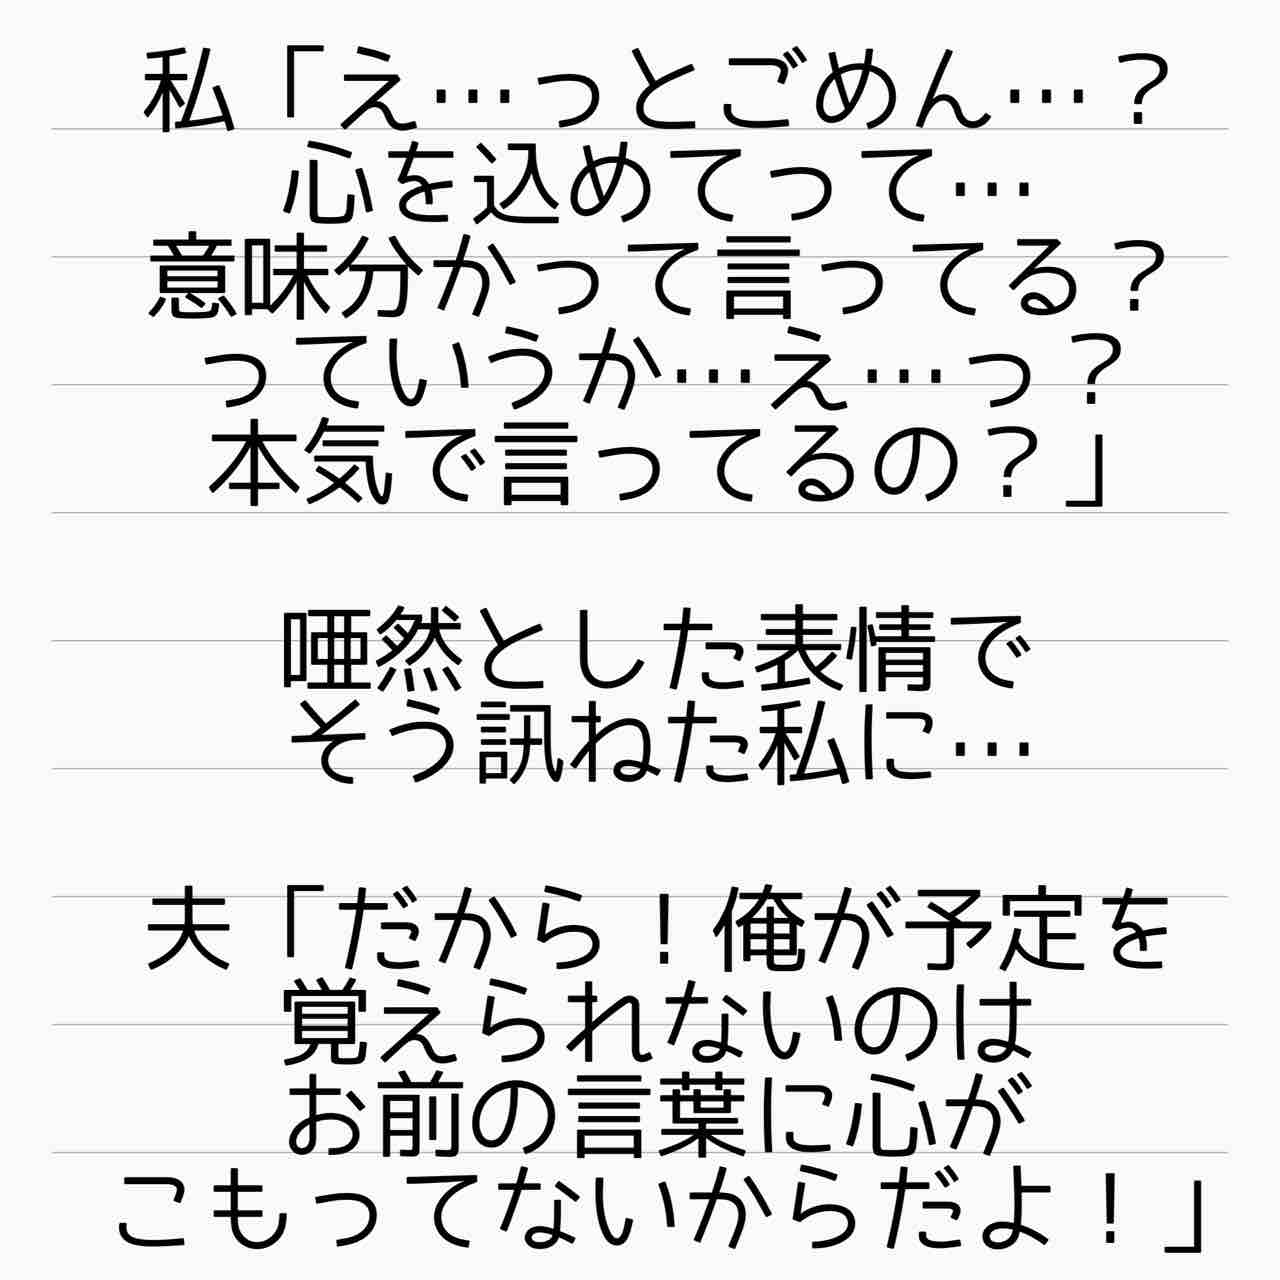 私「え…っとごめん…？
心を込めてって…
意味分かって言ってる？
っていうか…え…っ？
本気で言ってるの？」
唖然とした表情で
そう訊ねた私に…
夫「だから！俺が予定を
覚えられないのは
お前の言葉に心が
こもってないからだよ！」